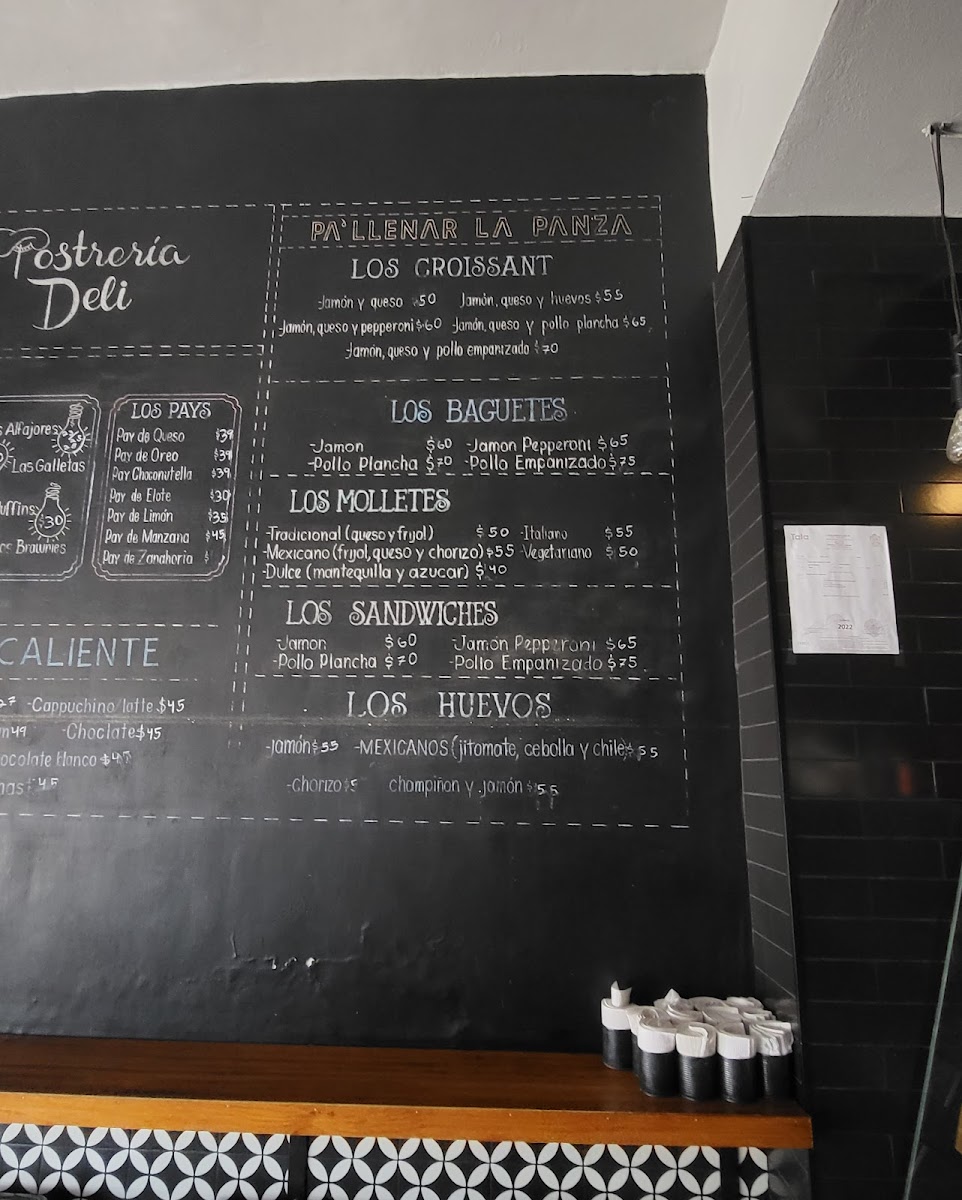 Postrería
Deli
Alfajores
Las Galletas
$30
Brownies
LOS PAYS
Pay de Queso $39
Pay de Oreo $39
Pay Choconutella $39
Pay de Elote $30
Pay de Limón $35
Pay de Manzana $45
Pay de Zanahoria $
CALIENTE
-Cappuchino/latte $45
49 -Choclate $45
ocolate blanco $45
45
PA'LLENAR LA PANZA
LOS CROISSANT
-Jamón y queso $50 Jamón, queso y huevos $55
-Jamón, queso y pepperoni $60 Jamón, queso y pollo plancha $65
Jamón, queso y pollo empanizado $70
LOS BAGUETES
-Jamon $60 -Jamon Pepperoni $65
-Pollo Plancha $70 -Pollo Empanizado $75
LOS MOLLETES
-Tradicional (queso y frijol) $50 -Italiano $55
-Mexicano (frijol, queso y chorizo) $55 -Vegetariano $50
-Dulce (mantequilla y azucar) $40
LOS SANDWICHES
-Jamon $60 -Jamón Pepperoni $65
-Pollo Plancha $70 -Pollo Empanizado $75
LOS HUEVOS
-jamón $55 -MEXICANOS (jitomate, cebolla y chile) $55
-Chorizo $5 champiñon y jamón $55
Tala
2022